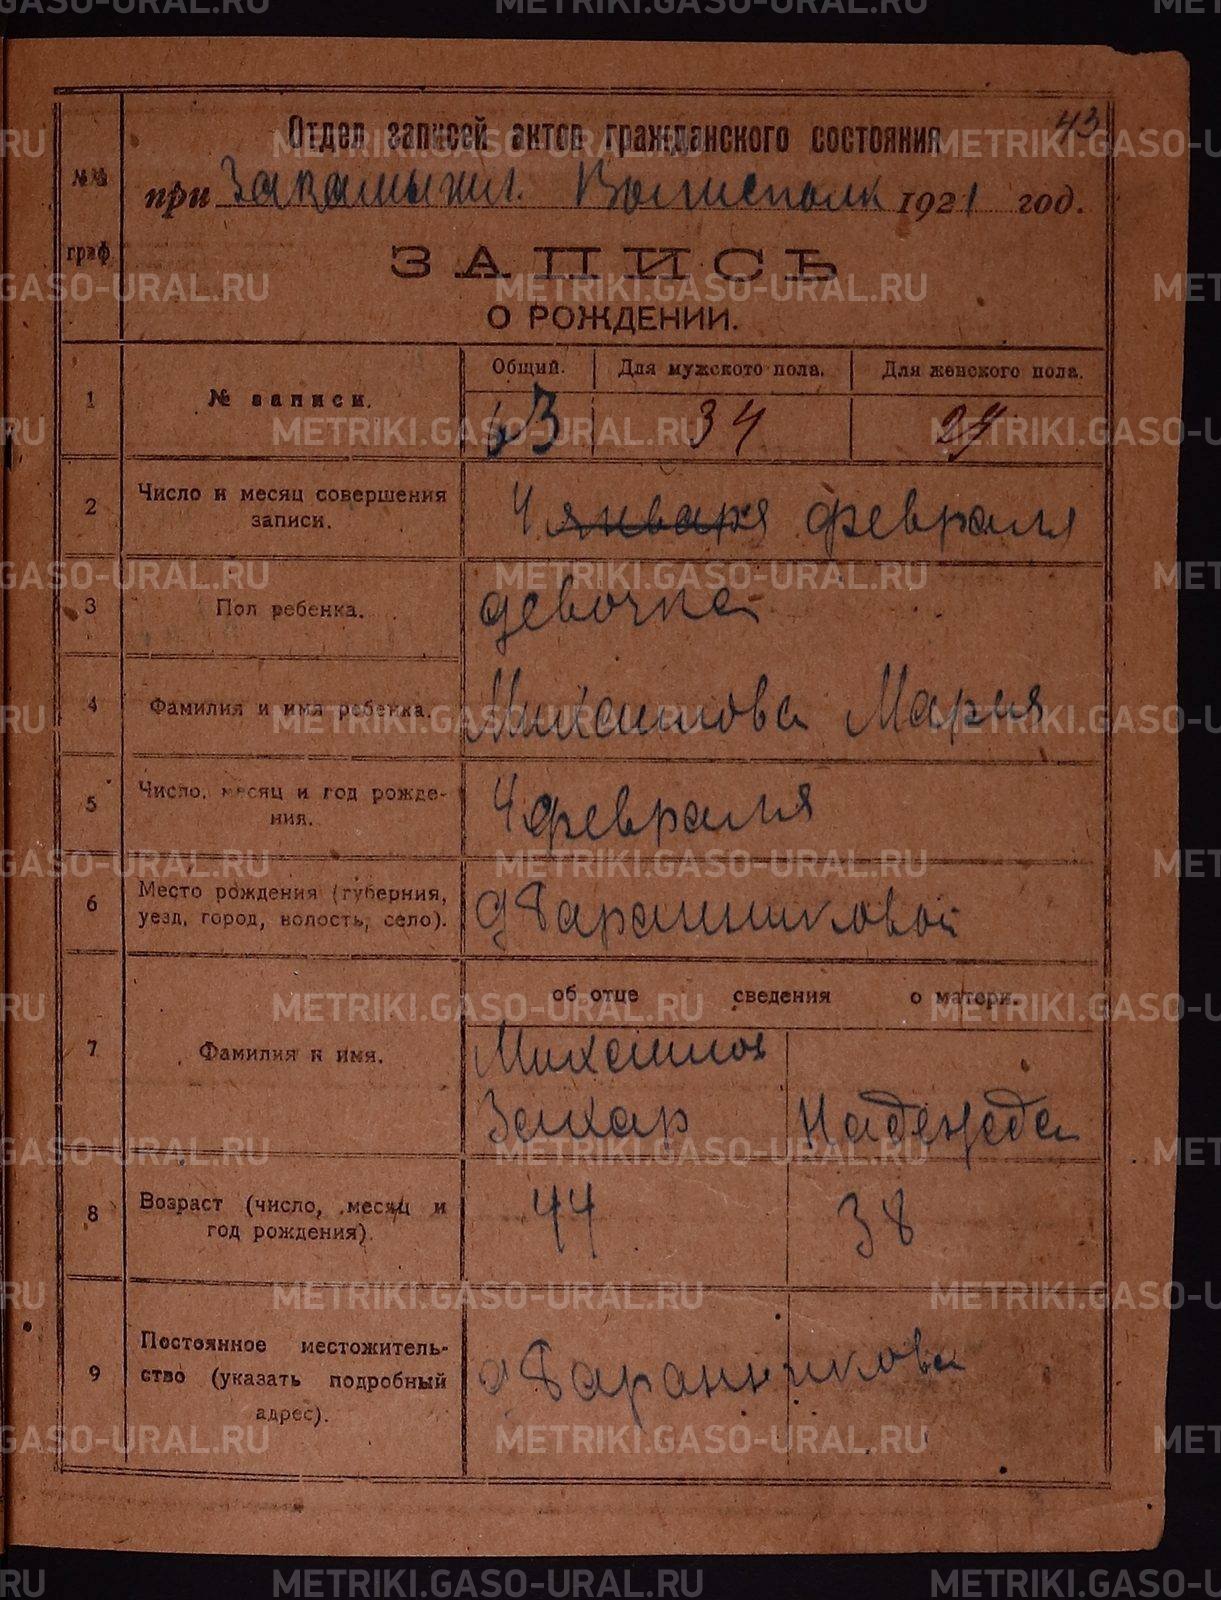 43
Отдел записей актов гражданского состояния
№№ граф
при Закамышл. Волисполк 1921 год.
ЗАПИСЬ
О РОЖДЕНИИ.
1 № записи. Общий. Для мужского пола. Для женского пола.
63 34 29
2 Число и месяц совершения записи. 4 января февраля
3 Пол ребенка. девочка
4 Фамилия и имя ребенка. Михайлова Мария
5 Число, месяц и год рождения. 4 февраля
6 Место рождения (губерния, уезд, город, волость, село). д Баранниковой
об отце сведения о матери.
7 Фамилия и имя. Михайлов
Захар Надежда
8 Возраст (число, месяц и год рождения). 44 38
9 Постоянное местожительство (указать подробный адрес). д Баранникова
METRIKI.GASO-URAL.RU